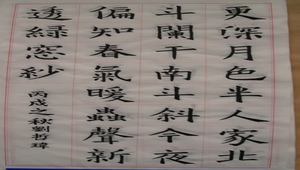 更深月色半人家北
斗闌干南斗斜今夜
偏知春氣暖蟲聲新
透綠窓紗
丙戌之秋劉哲瑋